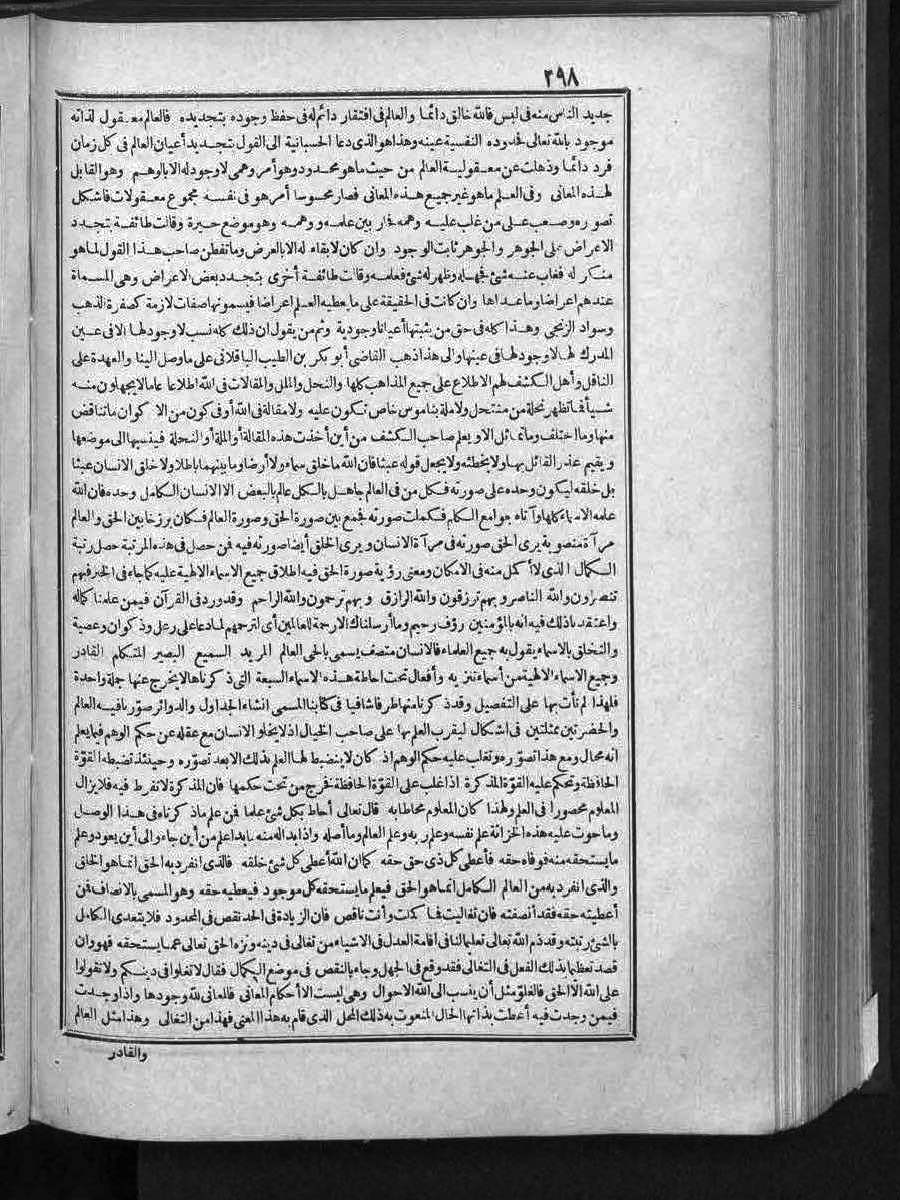 ٣٩٨
جديد الناس منه في لبس فالله خالق دائما والعالم في افتقار دائم له في حفظ وجوده بتجديده فالعالم معقول لذاته
موجود بالله تعالى فحدوده النفسية عينه وهذا هو الذي دعا الحسبانية الى القول بتجديد أعيان العالم في كل زمان
فرد دائما وذهلت عن معقولية العالم من حيث ما هو محدود وهو أمر وهمي لا وجود له الا بالوهم وهو القابل
لهذه المعاني وفي العلم ما هو غير جميع هذه المعاني فصار محسوسا أمر هو في نفسه مجموع معقولات فأشكل
تصوره وصعب على من غلب عليه وهمه فحار بين علمه ووهمه وهو موضع حيرة وقالت طائفة بتجدد
الاعراض على الجوهر والجوهر ثابت الوجود وان كان لا بقاء له الا بالعرض وما تفطن صاحب هذا القول لما هو
منكر له فغاب عنه شئ فجهله وظهر له شئ فعلمه وقالت طائفة أخرى بتجدد بعض الاعراض وهي المسماة
عندهم اعراضا وما عداها وان كانت في الحقيقة على ما يعطيه العلم اعراضا فيسمونها صفات لازمة كصفرة الذهب
وسواد الزنجي وهذا كله في حق من يثبتها أعيانا وجودية وثم من يقول ان ذلك كله نسب لا وجود لها الا في عين
المدرك لها لا وجود لها في عينها والى هذا ذهب القاضي أبو بكر بن الطيب الباقلاني على ما وصل الينا والعهدة على
الناقل وأهل الكشف لهم الاطلاع على جميع المذاهب كلها والنحل والملل والمقالات في الله اطلاعا عاما لا يجهلون منه
شيأ فما تظهر نحلة من منتحل ولا ملة بناموس خاص تكون عليه ولا مقالة في الله أو في كون من الاكوان ما تناقض
منها وما اختلف وما تماثل الا ويعلم صاحب الكشف من أين أخذت هذه المقالة أو الملة أو النحلة فينسبها الى موضعها
ويقيم عذر القائل بها ولا يخطئه ولا يجعل قوله عبثا فان الله ما خلق سماء ولا أرضا وما بينهما باطلا ولا خلق الانسان عبثا
بل خلقه ليكون وحده على صورته فكل من في العالم جاهل بالكل عالم بالبعض الا الانسان الكامل وحده فان الله
علمه الاسماء كلها وآتاه جوامع الكلم فكملت صورته فجمع بين صورة الحق وصورة العالم فكان برزخا بين الحق والعالم
مرآة منصوبة يرى الحق صورته في مرآة الانسان ويرى الخلق أيضا صورته فيه فمن حصل في هذه المرتبة حصل رتبة
الكمال الذي لا أكمل منه في الامكان ومعنى رؤية صورة الحق فيه اطلاق جميع الاسماء الالهية عليه كما جاء في الخبر فبهم
تنصرون والله الناصر وبهم ترزقون والله الرازق وبهم ترحمون والله الراحم وقد ورد في القرآن فيمن علمنا كماله
واعتقدنا ذلك فيه انه بالمؤمنين رؤف رحيم وما أرسلناك الا رحمة للعالمين أي لترحمهم لما دعا على رعل وذكوان وعصية
والتخلق بالاسماء يقول به جميع العلماء فالانسان متصف يسمى بالحي العالم المريد السميع البصير المتكلم القادر
وجميع الاسماء الالهية من أسماء تنزيه وأفعال تحت احاطة هذه الاسماء السبعة التي ذكرناها لا يخرج عنها جملة واحدة
فلهذا لم نأت بها على التفصيل وقد ذكرنا منها طرفا شافيا في كتابنا المسمى انشاء الجداول والدوائر صورنا فيه العالم
والحضرتين ممثلتين في اشكال ليقرب العلم بها على صاحب الخيال اذ لا يخلو الانسان مع عقله عن حكم الوهم فيما يعلم
انه محال ومع هذا تصوره وتغلب عليه حكم الوهم اذ كان لا ينضبط لها العلم بذلك الا بعد تصوره وحينئذ تضبطه القوة
الحافظة وتحكم عليه القوة المذكرة اذا غلب على القوة الحافظة فخرج من تحت حكمها فان المذكرة لا تفرط فيه فلا يزال
المعلوم محصورا في العلم ولهذا كان المعلوم محاطا به قال تعالى أحاط بكل شئ علما فمن علم ما ذكرناه في هذا الوصل
وما حوت عليه هذه الخزانة علم نفسه وعلم ربه وعلم العالم وما أصله واذا بدا له منه ما بدا علم من أين جاء والى أين يعود وعلم
ما يستحقه منه فوفاه حقه فأعطى كل ذي حق حقه كما ان الله أعطى كل شئ خلقه فالذي انفرد به الحق انما هو الخلق
والذي انفرد به من العالم الكامل انما هو الحق فيعلم ما يستحقه كل موجود فيعطيه حقه وهو المسمى بالانصاف فمن
أعطيته حقه فقد أنصفته فان تغاليت فما كملت وأنت ناقص فان الزيادة في الحد نقص في المحدود فلا يتعدى الكامل
بالشئ رتبته وقد ذم الله تعالى تعليما لنا في اقامة العدل في الاشياء من تغالى في دينه ونزه الحق تعالى عما يستحقه فهو وان
قصد تعظيما بذلك الفعل في التغالي فقد وقع في الجهل وجاء بالنقص في موضع الكمال فقال لا تغلوا في دينكم ولا تقولوا
على الله الا الحق فالغلو مثل أن ينسب الى الله الاحوال وهي ليست الا أحكام المعاني فالمعاني لله وجودها واذا وجدت
فيمن وجدت فيه أعطت بذاتها الحال المنعوت به ذلك المحل الذي قام به هذا المعنى فهذا من التغالي وهذا مثل العالم
والقادر